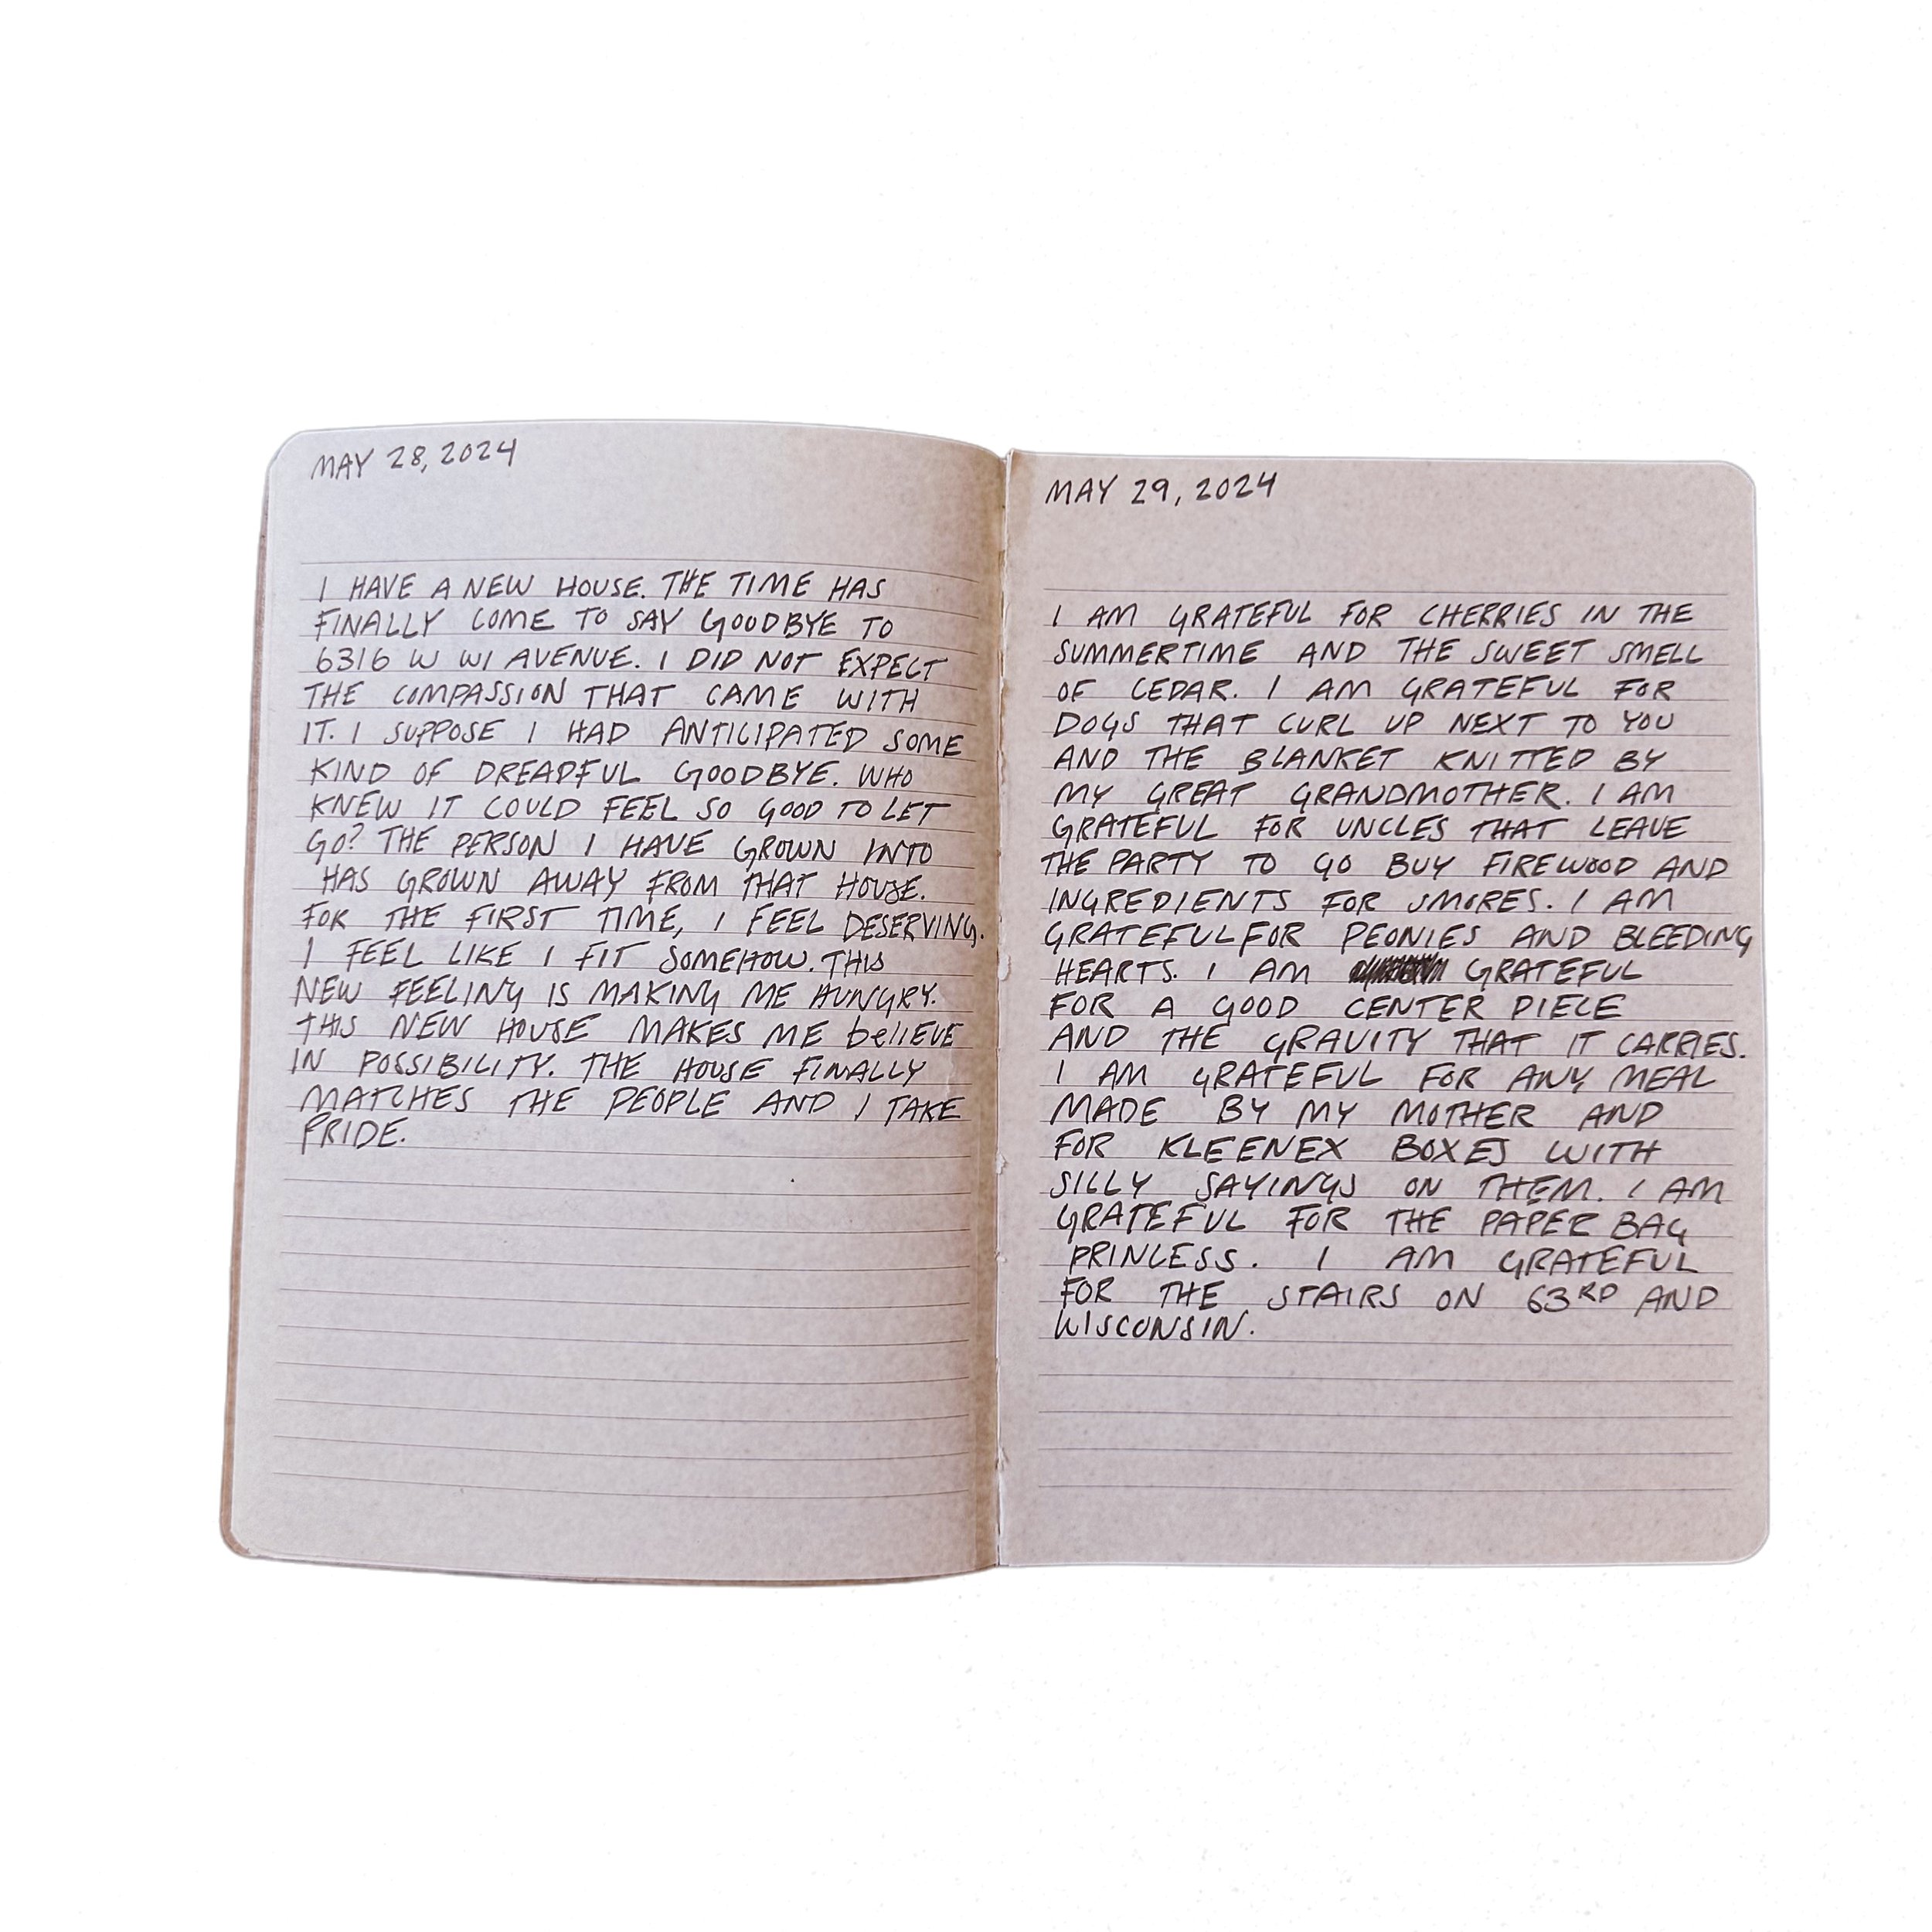 MAY 28, 2024
I HAVE A NEW HOUSE. THE TIME HAS
FINALLY COME TO SAY GOODBYE TO
6316 W WI AVENUE. I DID NOT EXPECT
THE COMPASSION THAT CAME WITH
IT. I SUPPOSE I HAD ANTICIPATED SOME
KIND OF DREADFUL GOODBYE. WHO
KNEW IT COULD FEEL SO GOOD TO LET
GO? THE PERSON I HAVE GROWN INTO
HAS GROWN AWAY FROM THAT HOUSE.
FOR THE FIRST TIME, I FEEL DESERVING.
I FEEL LIKE I FIT SOMEHOW. THIS
NEW FEELING IS MAKING ME HUNGRY.
THIS NEW HOUSE MAKES ME belIEVE
IN POSSIBILITY. THE HOUSE FINALLY
MATCHES THE PEOPLE AND I TAKE
PRIDE.
MAY 29, 2024
I AM GRATEFUL FOR CHERRIES IN THE
SUMMERTIME AND THE SWEET SMELL
OF CEDAR. I AM GRATEFUL FOR
DOGS THAT CURL UP NEXT TO YOU
AND THE BLANKET KNITTED BY
MY GREAT GRANDMOTHER. I AM
GRATEFUL FOR UNCLES THAT LEAVE
THE PARTY TO GO BUY FIREWOOD AND
INGREDIENTS FOR SMORES. I AM
GRATEFUL FOR PEONIES AND BLEEDING
HEARTS. I AM GRATEFUL
FOR A GOOD CENTER PIECE
AND THE GRAVITY THAT IT CARRIES.
I AM GRATEFUL FOR ANY MEAL
MADE BY MY MOTHER AND
FOR KLEENEX BOXES WITH
SILLY SAYINGS ON THEM. I AM
GRATEFUL FOR THE PAPER BAG
PRINCESS. I AM GRATEFUL
FOR THE STAIRS ON 63RD AND
WISCONSIN.